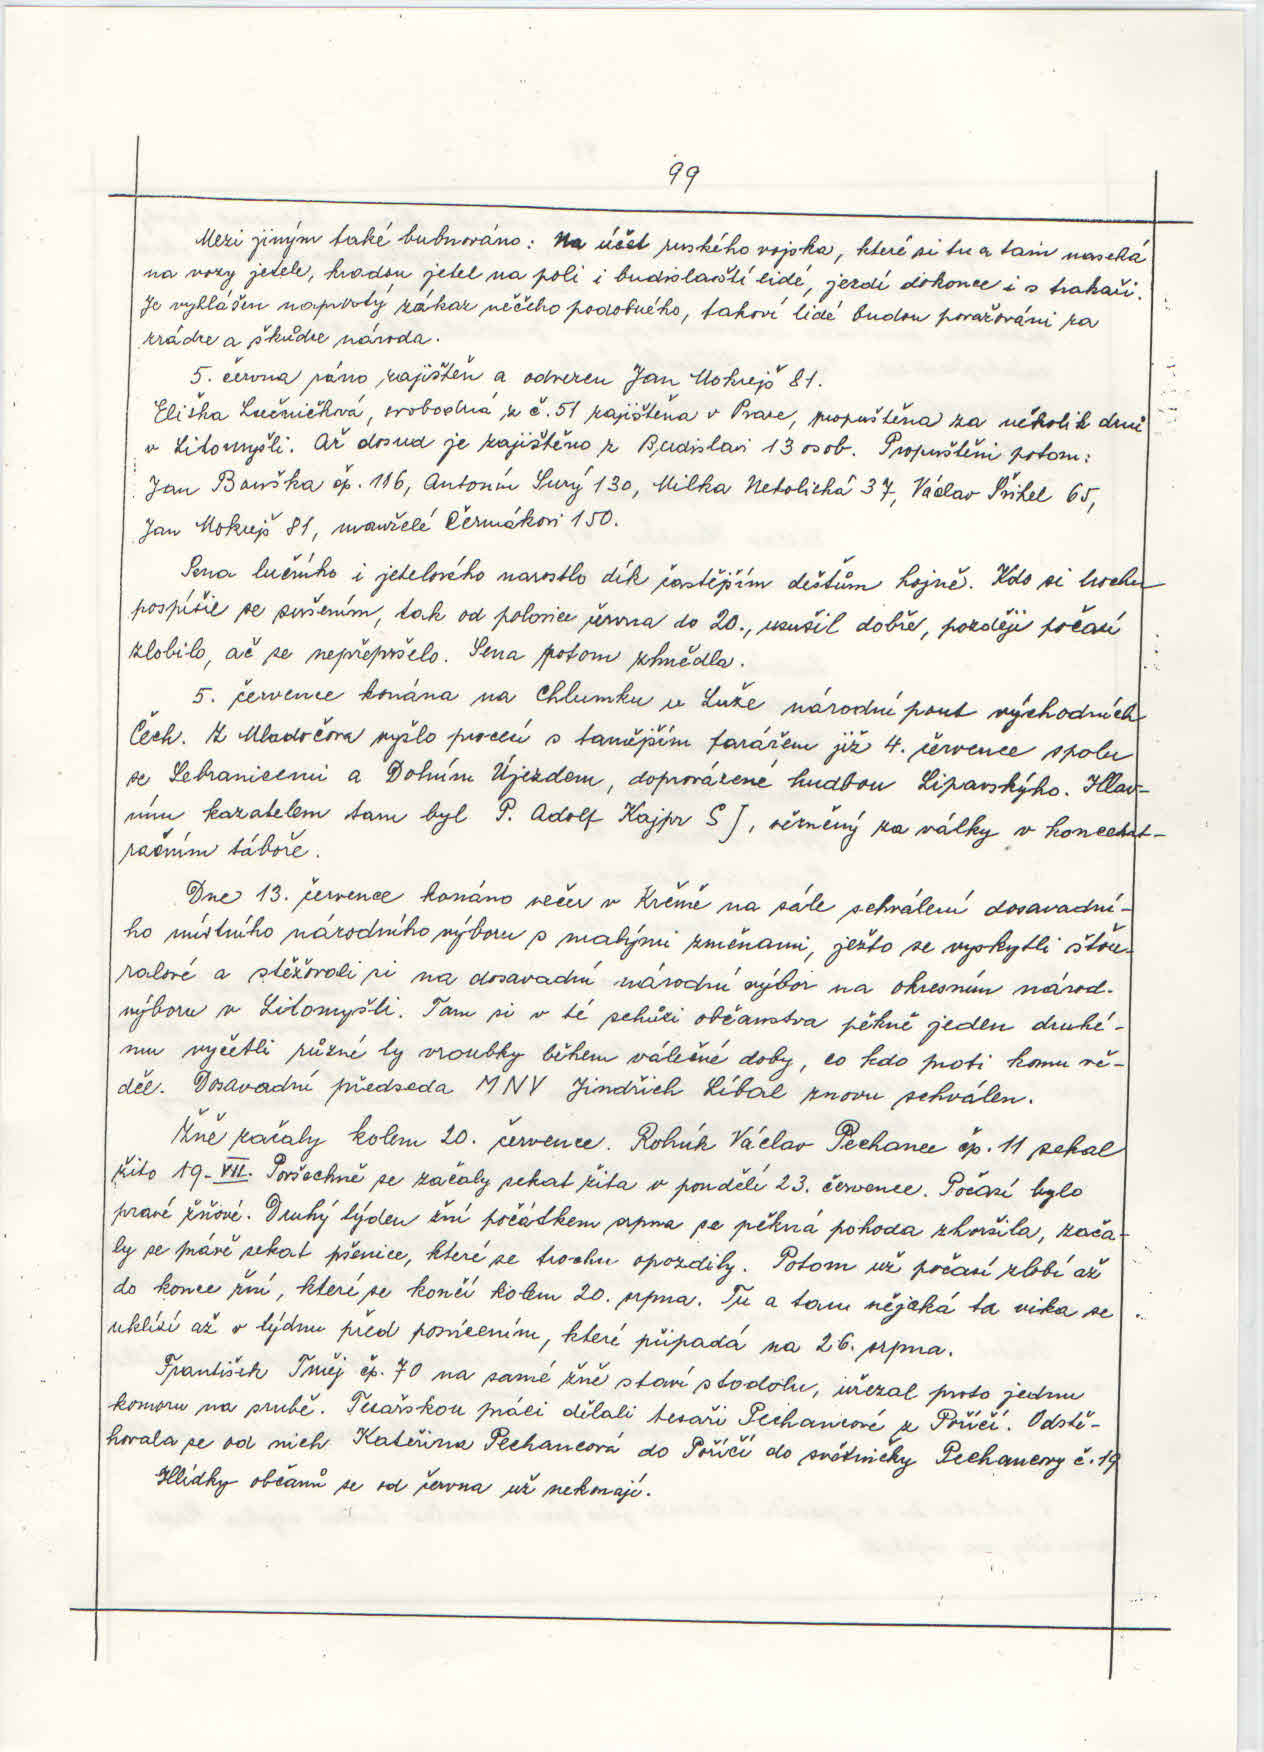 99
Mezi jiným také bubnováno: Na účet ruského vojska, které si tu a tam naseká
na vozy jetele, kradou jetel na poli i budislavští lidé, jezdí dokonce i s trakaři.
Je vyhlášen naprostý zákaz něčeho podobného, takoví lidé budou považováni za
zrádce a škůdce národa.
5. června ráno zajištěn a odvezen Jan Mokrejš 81.
Eliška Lučničková, svobodná z č. 51 zajištěna v Praze, propuštěna za několik dní
v Litomyšli. Až dosud je zajištěno z Budislavi 13 osob. Propuštěni potom:
Jan Bouška čp. 116, Antonín Surý 130, Milka Netolická 37, Václav Přihel 65,
Jan Mokrejš 81, manželé Čermákovi 150.
Sena lučního i jetelového narostlo dík častějším dešťům hojně. Kdo si trochu
pospíšil se sušením, tak od polovice června do 20., usušil dobře, později počasí
zlobilo, ač se nepřepršelo. Sena potom zhnědla.
5. července konána na Chlumku u Luže národní pout východních
Čech. Z Mladočova vyšlo procesí s tamějším farářem již 4. července spolu
se Sebranicemi a Dolním Újezdem, doprovázené hudbou Lipavského. Hlav-
ním kazatelem tam byl P. Adolf Kajpr SJ, vězněný za války v koncent-
račním táboře.
Dne 13. července konáno večer v Krčmě na sále schválení dosavadní-
ho místního národního výboru s malými změnami, ježto se vyskytli šťou-
ralové a stěžovali si na dosavadní národní výbor na okresním národ.
výboru v Litomyšli. Tam si v té schůzi občanstva pěkně jeden druhé-
mu vyčetli různé ty vroubky během válečné doby, co kdo proti komu vě-
děl. Dosavadní předseda MNV Jindřich Líbal znovu schválen.
Žně začaly kolem 20. července. Rolník Václav Pechanec čp. 11 sekal
žito 19. VII. Povšechně se začaly sekat žita v pondělí 23. července. Počasí bylo
pravé žňové. Druhý týden žní počátkem srpna se pěkná pohoda zhoršila, zača-
ly se právě sekat pšenice, které se trochu opozdily. Potom už počasí zlobí až
do konce žní, které se končí kolem 20. srpna. Tu a tam nějaká ta vika se
uklízí až v týdnu před posvícením, které připadá na 26. srpna.
František Tměj čp. 70 na samé žně staví stodolu, uřezal proto jednu
komoru na srubě. Tesařskou práci dělali tesaři Pechancové z Poříčí. Odstě-
hovala se od nich Kateřina Pechancová do Poříčí do světničky Pechancovy č. 19
Hlídky občanů se od června už nekonají.